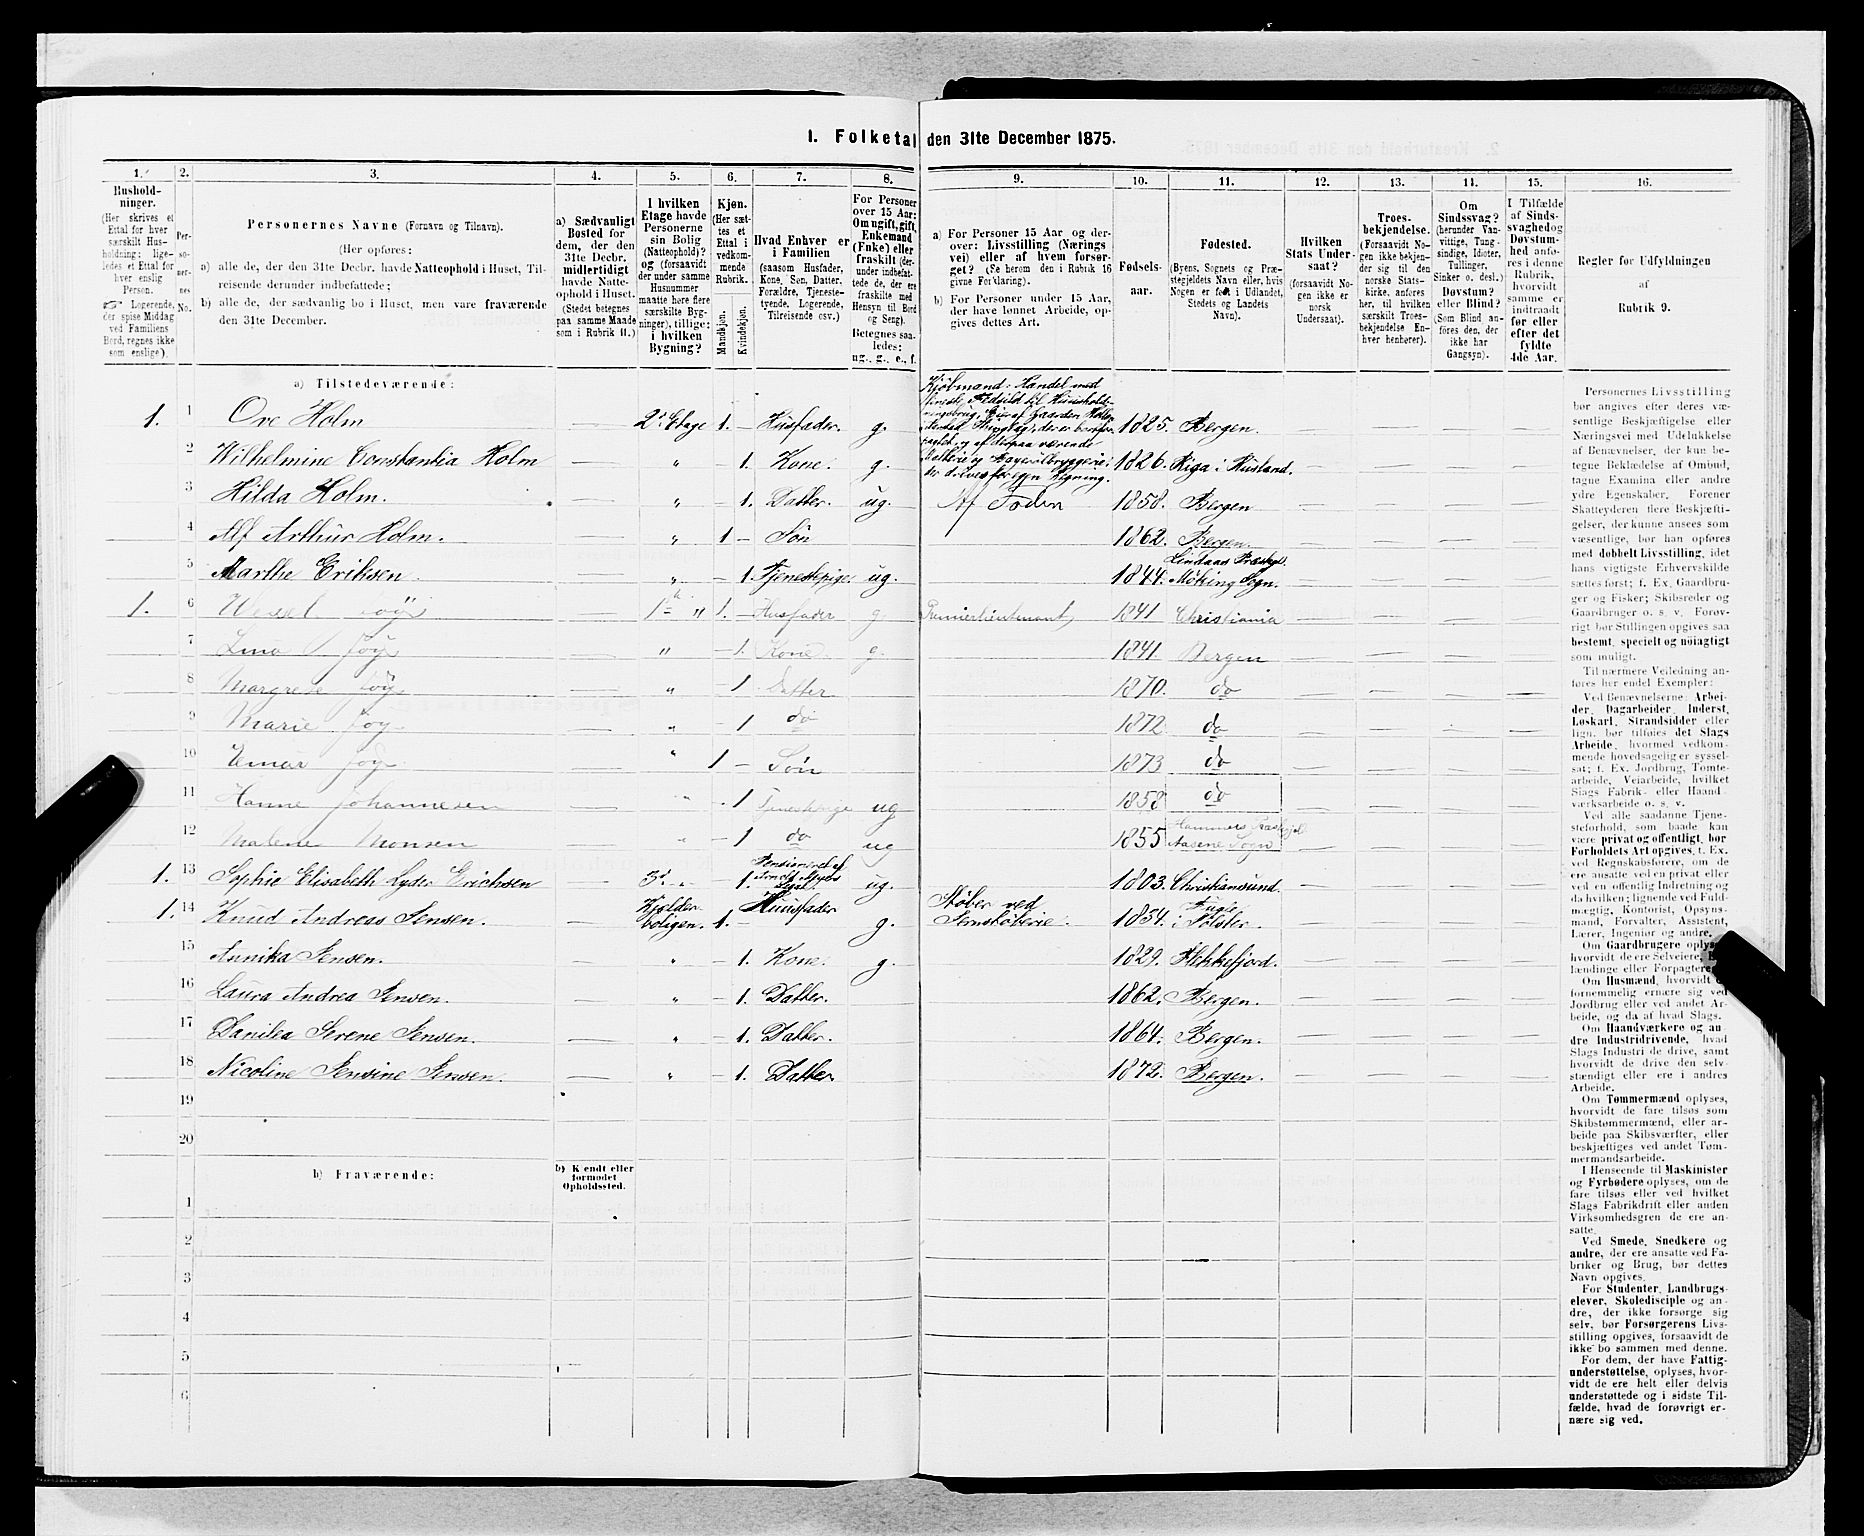 1. Folketal den 31te December 1875.
1. 2. 3. 4. 5. 6. 7. 8. 9. 10. 11. 12. 13. 14. 15. 16.
Husholdninger.
(Her skrives et
Ettal for hver
særskilt Husholdning;
ligeledes et Ettal for
hver enslig
Person.
☞ Logerende,
der spise Middag
ved Familiens
Bord, regnes ikke
som enslige).
Personernes No.
Personernes Navne (Fornavn og Tilnavn).
(Her opføres:
a) alle de, der den 31te Decbr. havde Natteophold i Huset, Tilreisende
derunder indbefattede;
b) alle de, der sædvanlig bo i Huset, men vare fraværende
den 31te December.
a) Sædvanligt
Bosted for
dem, der den
31te Decbr.
midlertidigt
havde Natteophold
i Huset.
(Stedet betegnes
paa samme Maade
som i Rubrik 11.)
I hvilken
Etage havde
Personerne
sin Bolig
(Natteophold)?
og (forsaavidt
der under samme
Husnummer
maatte høre flere
særskilte Bygninger),
tillige:
i hvilken
Bygning?
Kjøn.
(Her sættes
et
Ettal i
vedkommende
Rubrik.
Mandkjøn.
Kvindekjøn.
Hvad Enhver er
i Familien
(saasom Husfader,
Kone, Søn, Datter,
Forældre, Tjenestetyende,
Logerende,
Tilreisende osv.)
For Personer
over 15 Aar:
Om ugift, gift,
Enkemand
(Enke) eller
fraskilt (derunder
indbefattede
de, der ere
fraskilte med
Hensyn til Bord
og Seng).
Betegnes saaledes:
ug., g., e., f.
a) For Personer 15 Aar og derover:
Livsstilling (Næringsvei)
eller af hvem forsørget?
(Se herom den i Rubrik 16
givne Forklaring).
b) For Personer under 15 Aar,
der have lønnet Arbeide, opgives
dettes Art.
Fødselsaar.
Fødested.
(Byens, Sognets og Præstegjeldets
Navn eller, hvis
Nogen er født i Udlandet,
Stedets og Landets
Navn).
Hvilken
Stats Undersaat?
(forsaavidt Nogen
ikke er
norsk
Undersaat).
Troesbekjendelse.
(Forsaavidt Nogen
ikke bekjender
sig til den
norske Statskirke,
anføres
her, til hvilken
særskilt Troesbekjendelse
Enhver
henhører).
Om
Sindssvag?
(herunder Vanvittige,
Tungsindige,
Idioter,
Tullinger,
Sinker o. desl.)
Døvstum?
eller Blind?
(Som Blind anføres
den, der
ikke har
Gangsyn).
I Tilfælde
af Sindssvaghed
og
Døvstumhed
anføres
i denne
Rubrik,
hvorvidt
samme er
indtraadt
før eller
efter det
fyldte
4de Aar.
Regler for Udfyldningen
af
Rubrik 9.
a) Tilstedeværende:
1. 1 Ove Holm 2d Etage 1. — Husfader. g. Kjøbmand: Handel med 1825. Bergen.
2 Wilhelmine Constantia Holm " — 1. Kone. g. 1826. Riga i Rusland.
3 Hilda Holm. " — 1. Datter. ug. Af Faden 1858. Bergen
4 Alf Arthur Holm. " 1 — Søn 1862. Bergen.
5 Marthe Eriksen. " — 1. Tjenestepige ug. 1844. Lindaas Præstgl.
1. 6 1 " 1. — Husfader g. Premierlieutenant 1841 Christiania
7 " — 1. Kone. g. 1841. Bergen
8 Margrete " — 1 Datter 1870. do
9 Marie " — 1 do 1872. do
10 Einar " 1 — Søn 1873 do
11 Hanne Johannesen " 1 Tjenestepige ug 1858 do
12 Malene Monsen " — 1 do ug 1855 Hammers Præstgjel.
1. 13 Sophie Elisabeth Lyder Erichsen 3d " — 1. Pensioneret af ug. 1803. Christiansund.
1. 14 Knud Andreas Jensen. Kjelderboligen. 1. — Huusfader g. Støber ved
Jernstøberie. 1834. i Jølster.
15 Annika Jensen. " — 1. Kone. g. 1829. Flekkefjord.
16 Laura Andrea Jensen. " — 1. Datter. 1862. Bergen.
17 Danilea Serene Jensen. " — 1. Datter. 1864. Bergen.
18 Nicoline Jensine Jensen. " — 1. Datter. 1872. Bergen.
19
20
b) Fraværende:
b) Kjendt eller
formodet
Opholdssted.
1
2
3
4
5
6
Personernes Livsstilling
bør angives efter deres væsentlige
Beskjæftigelse eller
Næringsvei med Udelukkelse
af Benævnelser, der kun betegne
Beklædelse af Ombud,
tagne Examina eller andre
ydre Egenskaber. Forener
Skatteyderen flere Beskjæftigelser,
der kunne ansees som
væsentlige, bør han opføres
med dobbelt Livsstilling, idet
hans vigtigste Erhvervskilde
sættes først; f. Ex. Gaardbruger
og Fisker; Skibsreder og
Gaardbruger o. s. v. Forøvrigt
bør Stillingen opgives saa
bestemt, specielt og nøiagtigt
som muligt.
Til nærmere Veiledning anføres
her endel Exempler:
Ved Benævnelserne: Arbeider,
Dagarbeider, Inderst,
Løskarl, Strandsidder eller
lign. bør tilføies det Slags
Arbeide, hvormed vedkommende
hovedsagelig er sysselsat;
f. Ex. Jordbrug, Tomtearbeide,
Veiarbeide, hvilket
Slags Fabrik- eller Haandværksarbeide
o. s. v.
Ved alle saadanne Tjenesteforhold,
som baade kan
være privat og offentligt, bør
Forholdets Art opgives, f. Ex.
ved Regnskabsførere, om de
ere ansatte ved en privat eller
ved en offentlig Indretning og
da hvilken; ligesaa ved Fuldmægtig,
Kontorist, Opsynsmand,
Forvalter, Assistent,
Lærer, Ingeniør og andre.
Om Gaardbrugere oplyses,
hvorvidt de ere Selveiere,
Leilændinge eller Forpagtere.
Om Husmænd, hvorvidt de
fornemmelig ernære sig ved
Jordbrug eller ved andet Arbeide,
og da af hvad Slags.
Om Haandværkere og andre
Industridrivende, hvad
Slags Industri de drive, samt
hvorvidt de drive den selvstændigt
eller ere i andres
Arbeide.
Om Tømmermænd oplyses,
hvorvidt de fare tilsøs som
Skibstømmermænd, eller arbeide
paa Skibsværfter, eller
beskjæftiges ved andet Tømmermandsarbeide.
I Henseende til Maskinister
og Fyrbødere oplyses, om de
fare tilsøs eller ved hvilket
Slags Fabrikdrift eller anden
Virksomhedsgren de ere ansatte.
Ved Smede, Snedkere og
andre, der ere ansatte ved Fabriker
og Brug, bør dettes
Navn opgives.
For Studenter, Landbrugselever,
Skoledisciple og andre,
der ikke forsørge sig
selv, bør Forsørgerens Livsstilling
opgives, forsaavidt de
ikke bo sammen med denne.
For dem, der have Fattigunderstøttelse,
oplyses, hvorvidt
de ere helt eller delvis
understøttede og i sidste Tilfælde,
hvad de forøvrigt ernære
sig ved.